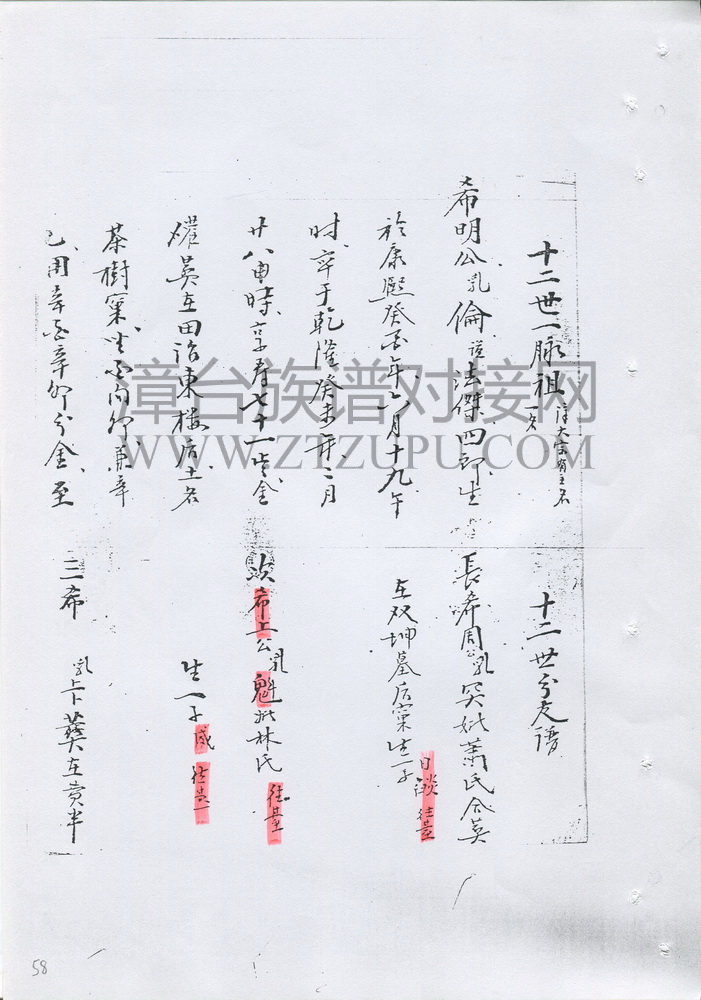 十二世一脉祖
希明公乳倫諡法傑四郎生
於康熙癸酉年六月十九午
时卒于乾隆癸未年二月
廿八申時享寿七十一岁金
礶葬在田治東楼后土名
茶樹窠坐酉向卯兼辛
乙用辛酉辛卯分金至
十二世分支譜
長希周公乳突妣萧氏合葬
在双坤墓后窠生一子
日
往台
次希上公乳魁妣林氏
往台
生一子威往台
三希
乳卡葬在黄半
漳台族谱对接网
WWW.ZTZUPU.COM
58